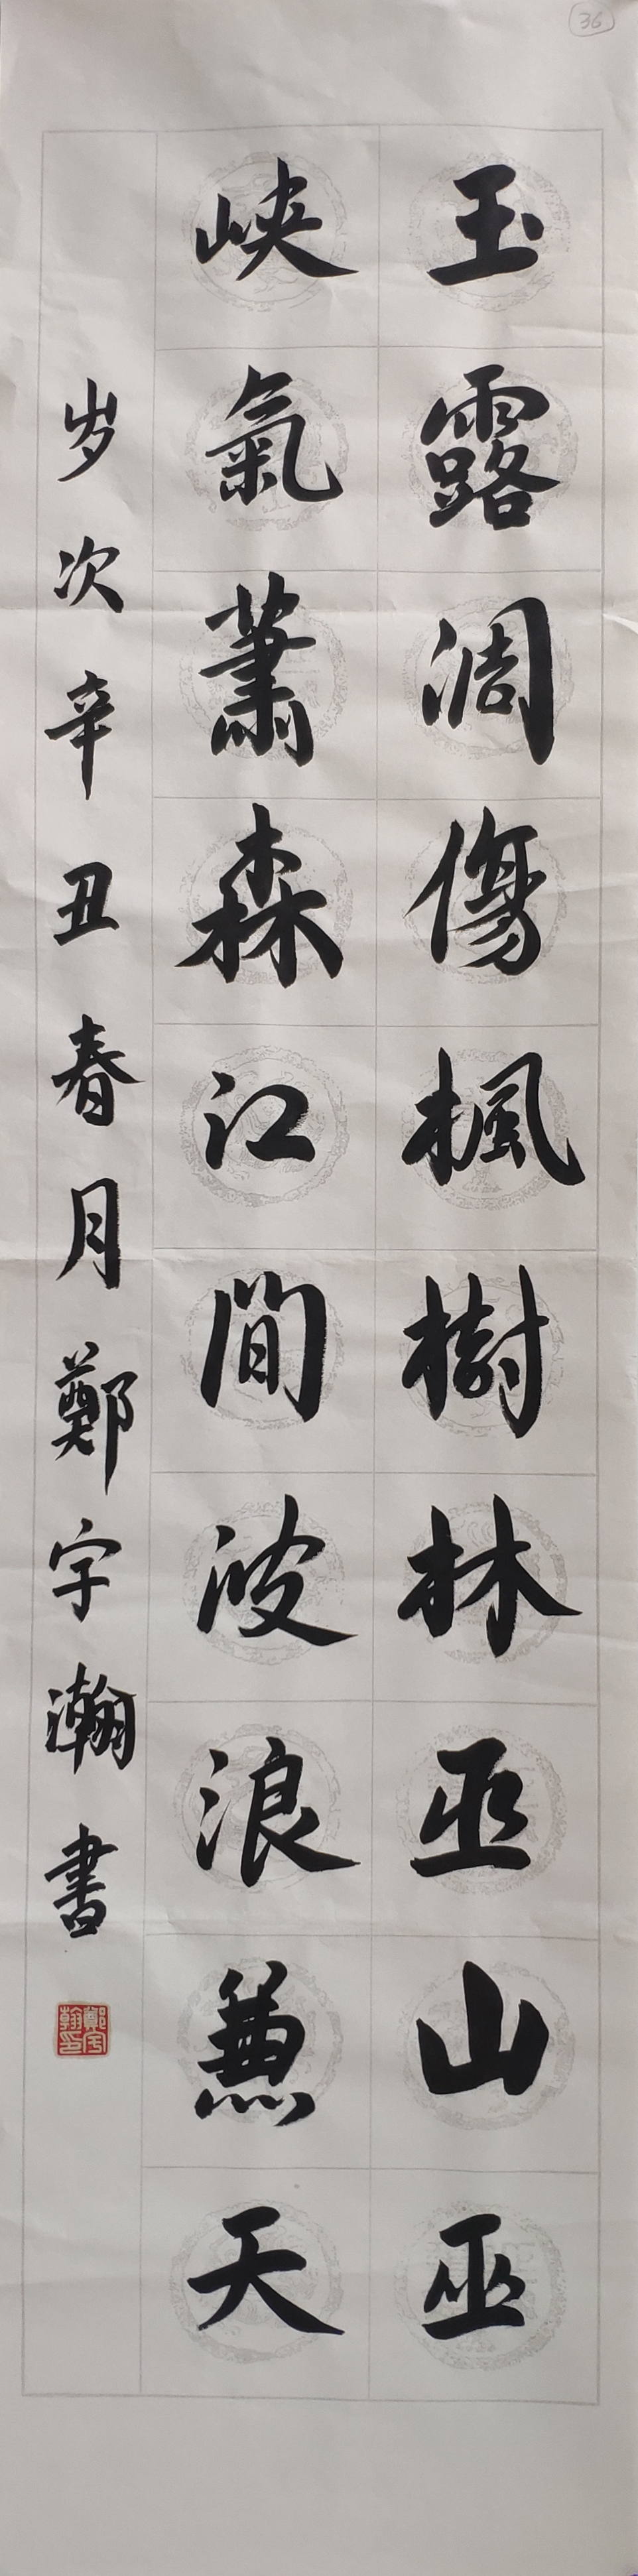 36
玉露凋傷楓樹林巫山巫
峡氣蕭森江間波浪兼天
岁次辛丑春月鄭宇瀚書
鄭宇瀚印